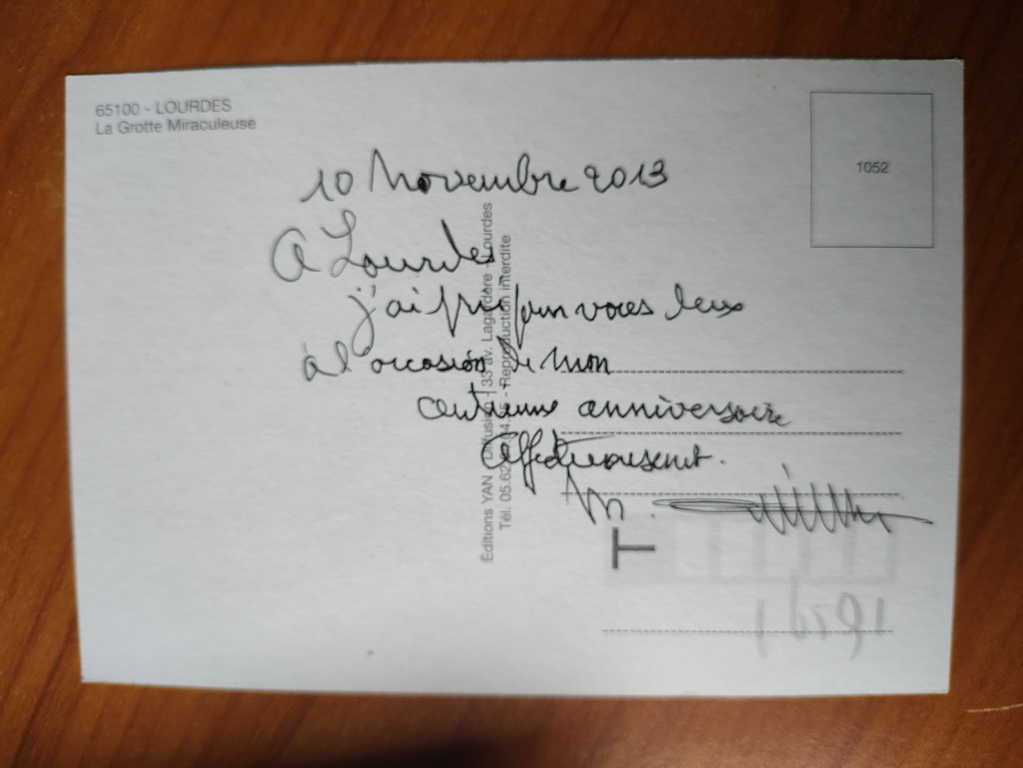 65100 - LOURDES
La Grotte Miraculeuse
1052
10 Novembre 2013
A Lourdes
j'ai prié pour vous deux
à l'occasion de mon
centième anniversaire
Affectueusement.
M.
Editions YAN Diffusion 33 av. Lagardère - Lourdes
Tél. 05.62 - Reproduction interdite
T